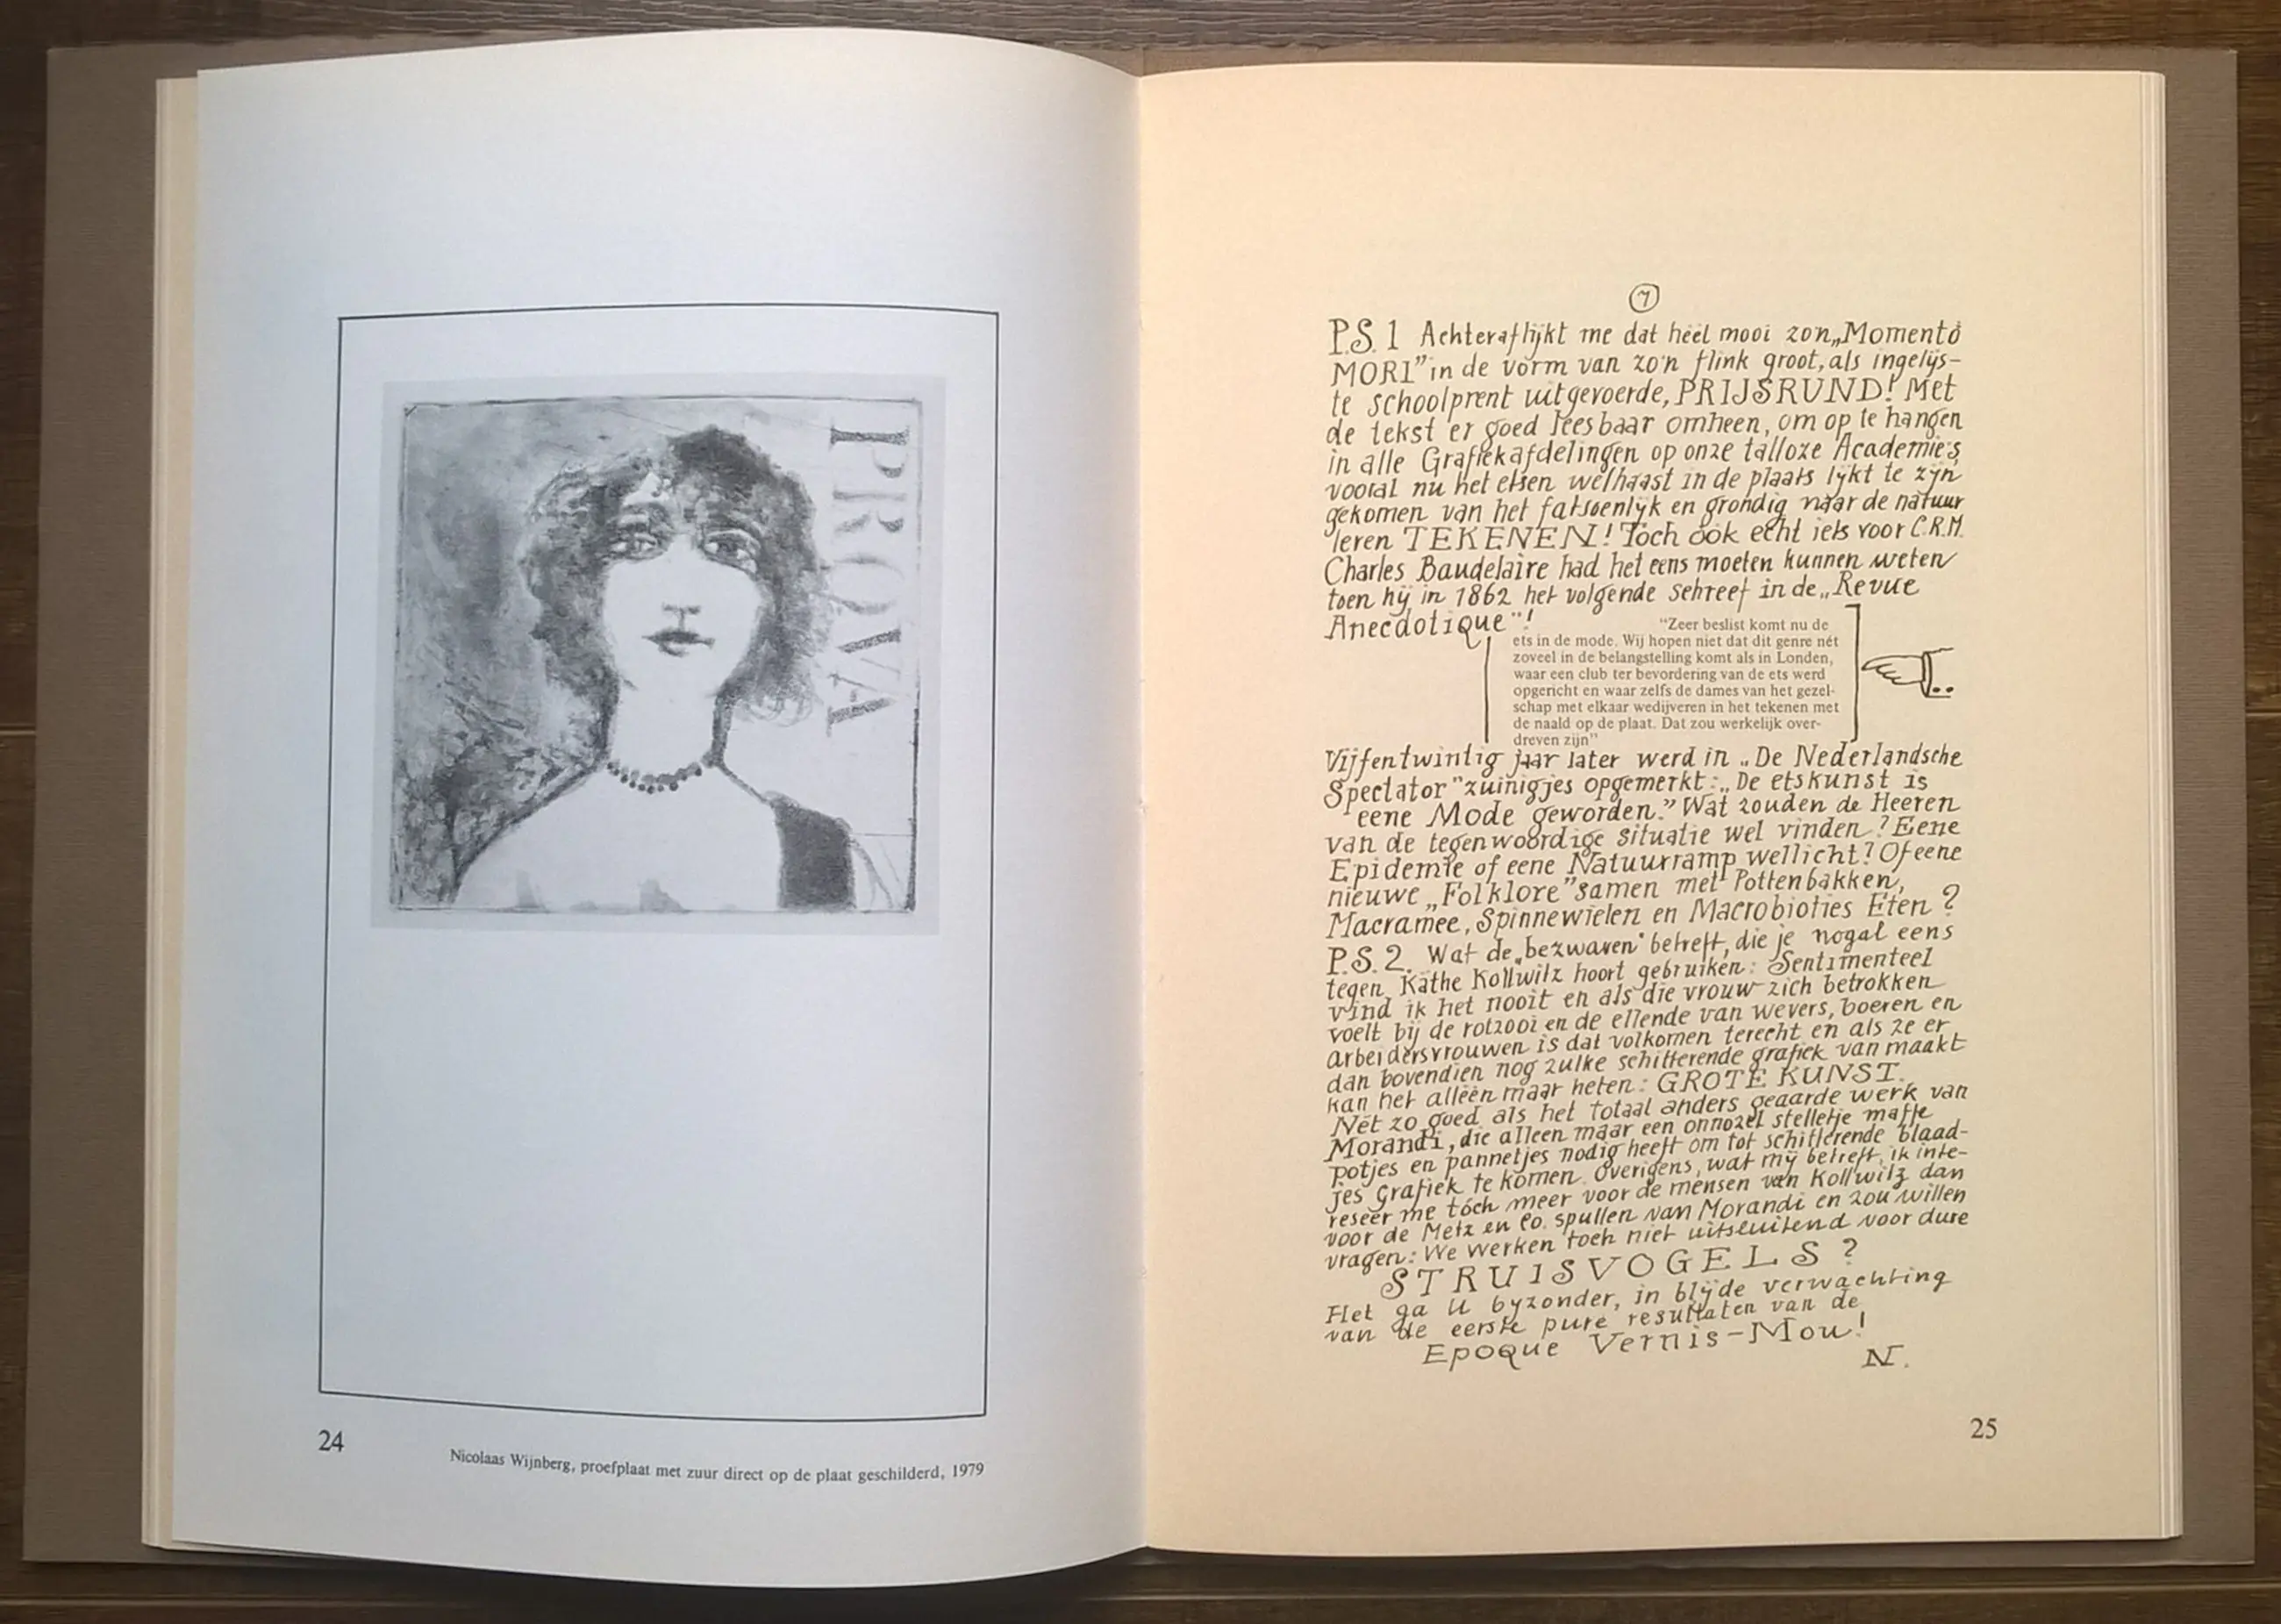 PROVA
24
Nicolaas Wijnberg, proefplaat met zuur direct op de plaat geschilderd, 1979
7
P.S. 1 Achteraf lijkt me dat héél mooi zo'n „Momento
MORI” in de vorm van zo'n flink groot, als ingelijs-
te schoolprent uitgevoerde, PRIJSRUND! Met
de tekst er goed leesbaar omheen, om op te hangen
in alle Grafiekafdelingen op onze talloze Academies,
vooral nu het etsen welhaast in de plaats lijkt te zijn
gekomen van het fatsoenlijk en grondig naar de natuur
leren TEKENEN! Toch óók echt iets voor C.R.M.
Charles Baudelaire had het eens moeten kunnen weten
toen hij in 1862 het volgende schreef in de „Revue
Anecdotique”!
"Zeer beslist komt nu de
ets in de mode. Wij hopen niet dat dit genre nét
zoveel in de belangstelling komt als in Londen,
waar een club ter bevordering van de ets werd
opgericht en waar zelfs de dames van het gezel-
schap met elkaar wedijveren in het tekenen met
de naald op de plaat. Dat zou werkelijk over-
dreven zijn"
Vijfentwintig jaar later werd in „De Nederlandsche
Spectator” zuinigjes opgemerkt: „De etskunst is
eene Mode geworden.” Wat zouden de Heeren
van de tegenwoordige situatie wel vinden? Eene
Epidemie of eene Natuurramp wellicht? Of eene
nieuwe „Folklore” samen met Pottenbakken,
Macramee, Spinnewielen en Macrobioties Eten?
P.S. 2. Wat de „bezwaren” betreft, die je nogal eens
tegen Käthe Kollwitz hoort gebruiken: Sentimenteel
vind ik het nooit en als die vrouw zich betrokken
voelt bij de rotzooi en de ellende van wevers, boeren en
arbeidersvrouwen is dat volkomen terecht en als ze er
dan bovendien nog zulke schitterende grafiek van maakt
kan het alléén maar heten: GROTE KUNST.
Nét zo goed als het totaal anders geaarde werk van
Morandi, die alleen maar een onnozel stelletje maffe
potjes en pannetjes nodig heeft om tot schitterende blaad-
jes Grafiek te komen. Overigens, wat mij betreft, ik inte-
reseer me tóch meer voor de mensen van Kollwitz dan
voor de Metz en Co. spullen van Morandi en zou willen
vragen: We werken toch niet uitsluitend voor dure
STRUISVOGELS?
Het ga U byzonder, in blijde verwachting
van de eerste pure resultaten van de
Epoque Vernis-Mou!
N.
25